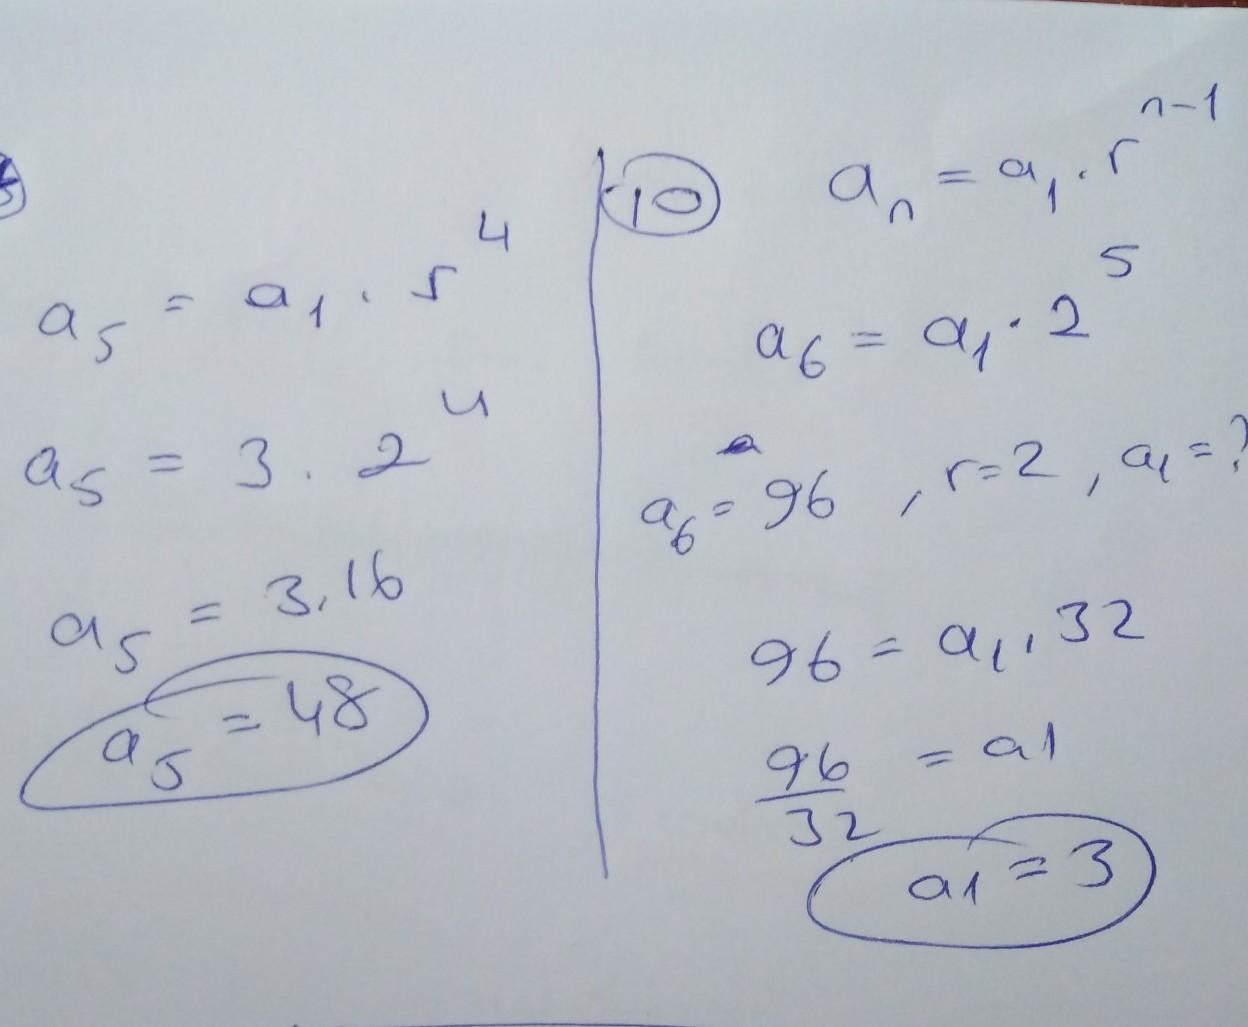 a₅ = a₁ . r⁴
a₅ = 3 . 2⁴
a₅ = 3.16
a₅ = 48
10
aₙ = a₁ . rⁿ⁻¹
a₆ = a₁ . 2⁵
a₆ = 96 , r = 2 , a₁ = ?
96 = a₁ . 32
96/32 = a1
a1 = 3